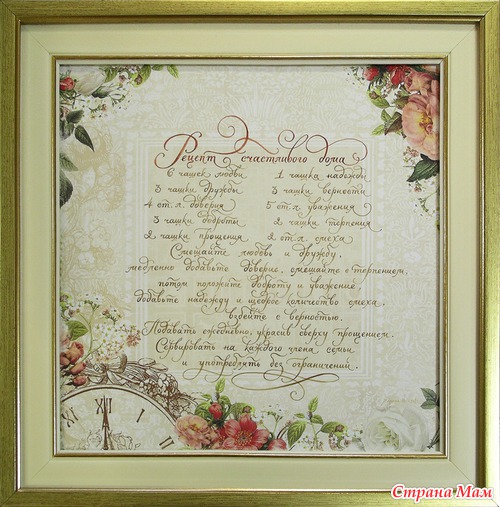 Рецепт счастливого дома
6 чашек любви 1 чашка надежды
3 чашки дружбы 3 чашки верности
4 ст.л. доверия 5 ст.л. уважения
3 чашки доброты 2 чашки терпения
2 чашки прощения 2 ст.л. смеха
Смешайте любовь и дружбу,
медленно добавьте доверие, смешайте с терпением,
потом положите доброту и уважение,
добавьте надежду и щедрое количество смеха,
взбейте с верностью.
Подавать ежедневно, украсив сверху прощением.
Сервировать на каждого члена семьи
и употреблять без ограничений.
XI XII I
Страна Мам